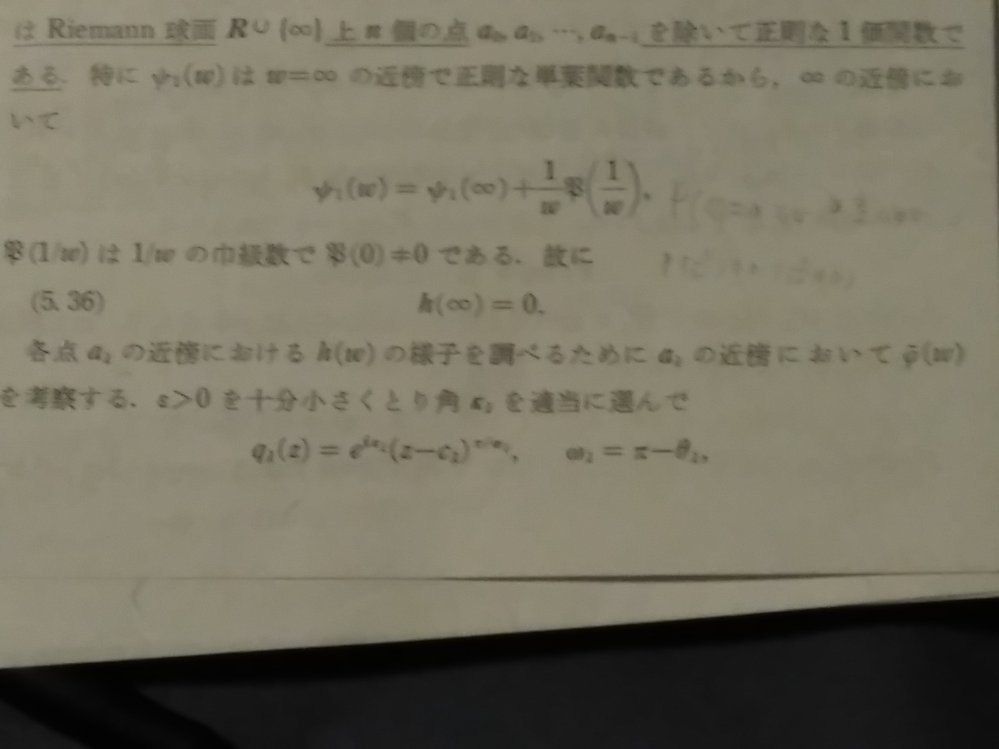 は Riemann 球面 R∪{∞} 上 n 個の点 a₀, a₁, ⋯, aₙ₋₁ を除いて正則な1価関数で
ある. 特に ψ₁(w) は w=∞ の近傍で正則な単葉関数であるから, ∞ の近傍にお
いて
ψ₁(w) = ψ₁(∞) + 1/w 𝔓(1/w),
𝔓(1/w) は 1/w の巾級数で 𝔓(0)≠0 である. 故に
(5.36) h(∞) = 0.
各点 a₁ の近傍における h(w) の様子を調べるために a₁ の近傍において (w)
を考察する. ε>0 を十分小さくとり角 κ₁ を適当に選んで
q₁(z) = (z−c₁), ω₁ = π−θ₁,